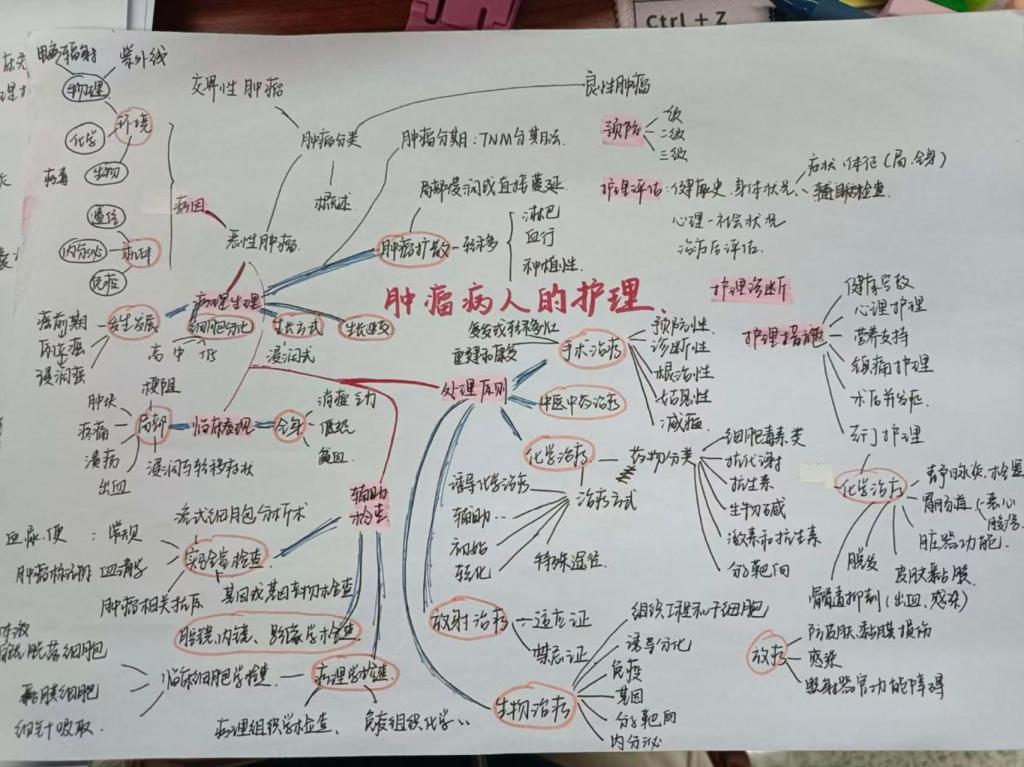 Ctrl + Z
肿瘤病人的护理
电离辐射
紫外线
物理
化学
环境
病毒
生物
遗传
内分泌
机体
免疫
病因
交界性肿瘤
良性肿瘤
肿瘤分类
概述
恶性肿瘤
肿瘤分期:TNM分期法
局部浸润或直接蔓延
肿瘤扩散
转移
淋巴
血行
种植性
病理生理
细胞分化
高 中 低
生长方式
浸润式
生长速度
发生发展
癌前期
原位癌
浸润癌
临床表现
局部
肿块
疼痛
溃疡
出血
梗阻
浸润与转移症状
全身
消瘦 乏力
低热
贫血
辅助
检查
实验室检查
流式细胞分析术
血、尿、便:常规
血清学
肿瘤相关抗原
基因或基因产物检查
内镜、影像学检查
病理学检查
临床细胞学检查
脱落细胞
黏膜细胞
细针吸取
病理组织学检查、
免疫组织化学..
处理原则
手术治疗
复发或转移灶
重建和康复
预防性
诊断性
根治性
姑息性
减瘤
中医中药治疗
化学治疗
药物分类
细胞毒素类
抗代谢
抗生素
生物碱
激素和抗生素
分子靶向
治疗方式
诱导化学治疗
辅助..
初始
转化
特殊途径
放射治疗
适应证
禁忌证
生物治疗
组织工程和干细胞
诱导分化
免疫
基因
分子靶向
内分泌
预防
一级
二级
三级
护理评估:健康史、身体状况、
症状、体征(局、全身)
辅助检查
心理-社会状况
治疗后评估
护理诊断
护理措施
健康宣教
心理护理
营养支持
镇痛护理
术后并发症
专门护理
化学治疗
静脉炎、栓塞
胃肠道
恶心
脏器功能
皮肤黏膜
骨髓抑制(出血、感染)
脱发
放疗
防皮肤黏膜损伤
感染
照射器官功能障碍